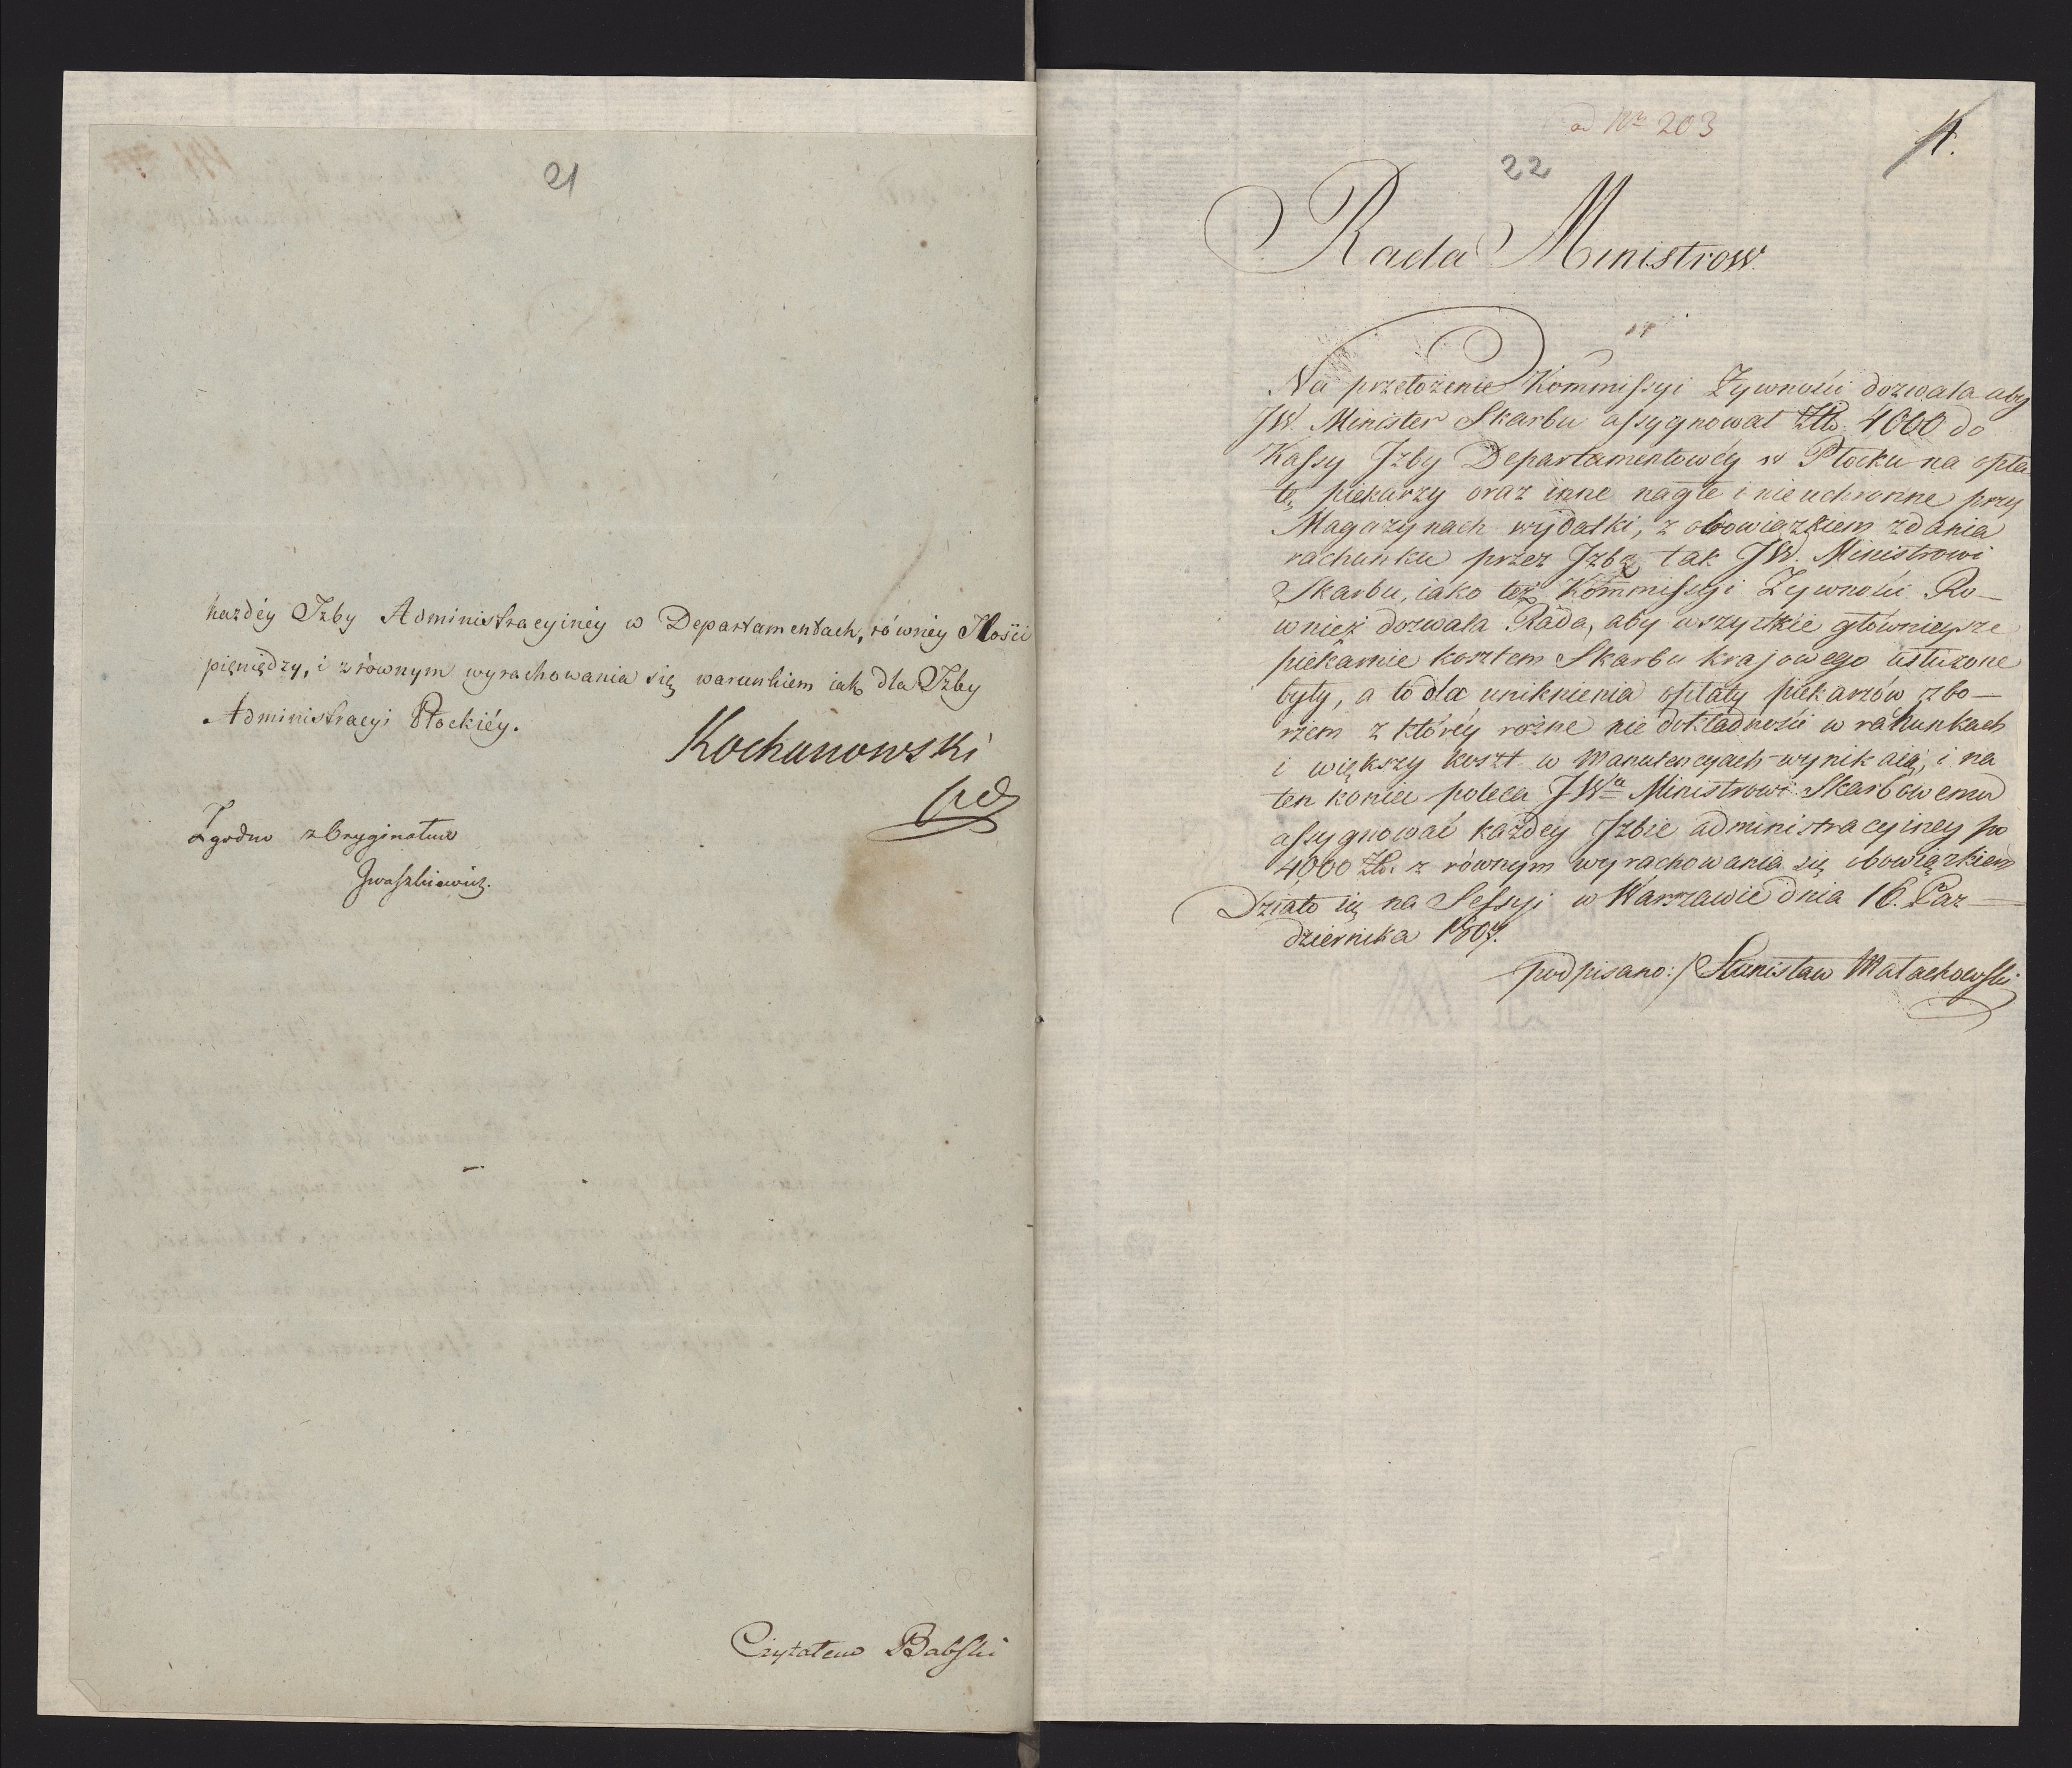 21
każdéy Izby Administracyinéy w Departamentach, równéy Ilości
pięniędzy, i z równym wyrachowania się warunkiem iak dla Izby
Administracyi Płockiéy.
Kochanowski
Zgodno z Oryginałem
Iwaszkiewicz.
Czytałem Babski
ad Nr 203
22
Rada Ministrow.
Na przełożenie Kommissyi Żywności dozwala aby
JW. Minister Skarbu assygnował Złp. 4000 do
Kassy Izby Departamentowéy w Płocku na opła
tę piekarzy oraz inne nagłe i nieuchronne przy
Magazynach wydatki, z obowiązkiem zdania
rachunku przez Izbę tak JW. Ministrowi
Skarbu, iako też Kommissyi Żywności Ro-
wnież dozwala Rada, aby wszystkie główniejsze
piekarnie kosztem Skarbu krajowego
były, a to dla uniknienia opłaty piekarzów zbo-
żem z któréy rożne niedokładności w rachunkach
i większy koszt w Manutencyach wynikaią, i na
ten koniec poleca JWu Ministrowi Skarbowemu
assygnować każdey Izbie administracyiney po
4000 Złp. z równym wyrachowania się obowiązkiem
Działo się na Sessyi w Warszawie dnia 16. Paz-
dziernika 1807.
podpisano:/ Stanisław Małachowski